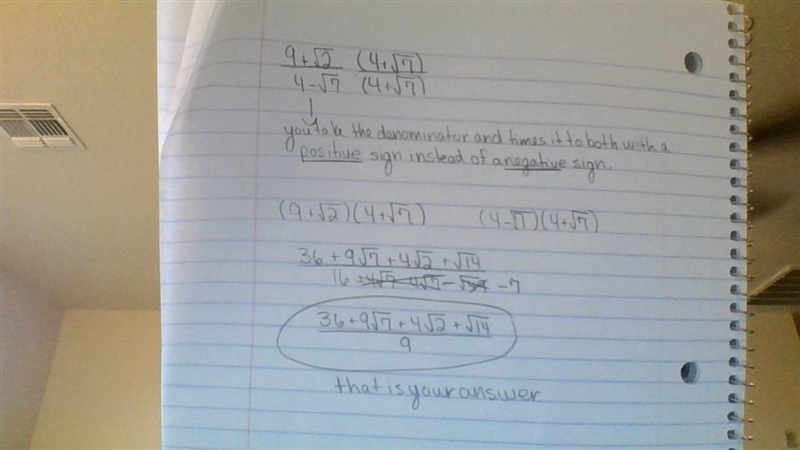 9+√2 (4+√7)
4-√7 (4+√7)
you take the denominator and times it to both with a
positive sign instead of a negative sign.
(9+√2)(4+√7) (4-√7)(4+√7)
36+9√7+4√2+√14
16 -7
36+9√7+4√2+√14
9
that is your answer